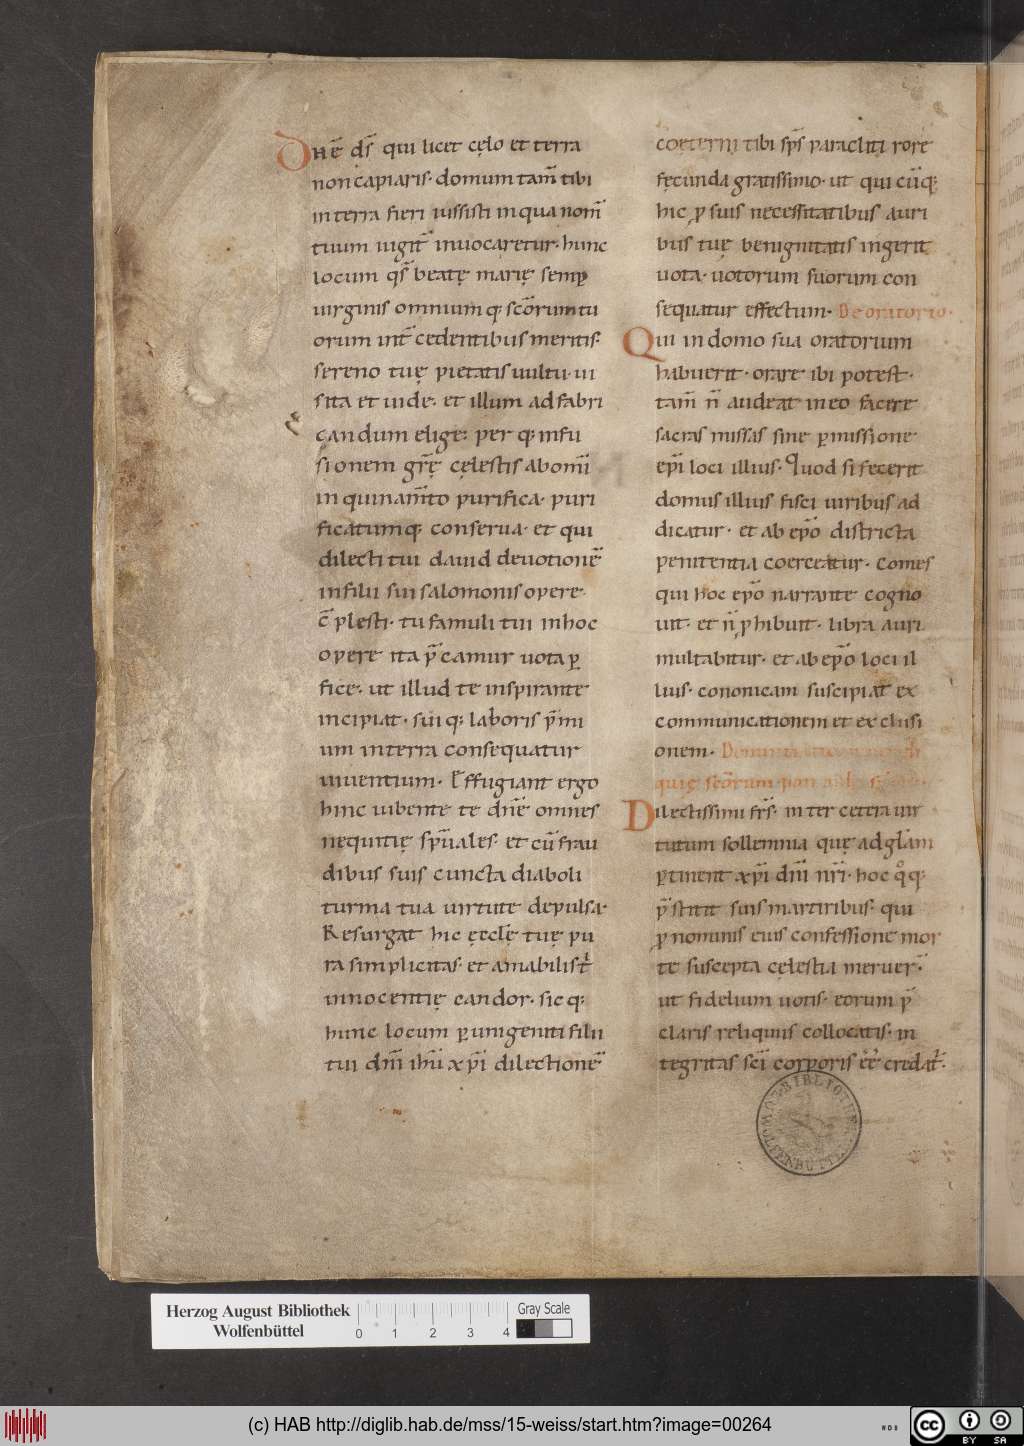 Dnē ds̄ qui licet cęlo et terra
non capiaris· domum tam̄ tibi
in terra fieri iussisti in qua nom̄
tuum iugit̄ inuocaretur· hunc
locum qs̄ beatę marię semp
uirginis omnium q; scōrum tu
orum int̄cedentibus meritis·
sereno tuę pietatis uultu· ui
sita et uide· et illum ad fabri
candum elige· per q; infu
sionem gr̄ę cęlestis ab om̄i
inquinam̄to purifica· puri
ficatumq; conserua· et qui
dilecti tui dauid deuotionē
in filii sui salomonis opere
c̄plesti· tu famuli tui in hoc
opere ita p̄camur uota p
fice· ut illud te inspirante
incipiat· sui q; laboris p̄mi
um in terra consequatur
uiuentium· Effugiant ergo
hinc iubente te dn̄e omnes
nequitię sp̄uales· et cū frau
dibus suis cuncta diaboli
turma tua uirtute depulsa·
Resurgat hic ęcclē tuę pu
ra simplicitas· et amabilis t̄
innocentię candor· sic q;
hunc locum p unigeniti filii
tui dn̄i ihū xp̄i dilectionē
coęterni tibi sps̄ paracliti rore
fęcunda gratissimo· ut qui cūq;
hic p suis necessitatibus auri
bus tuę benignitatis ingerit
uota· uotorum suorum con
sequatur effectum· De oratorio·
Qui in domo sua oratorium
habuerit· orare ibi potest·
tam̄ n̄ audeat in eo facere
sacras missas sine pmissione
epī loci illius· Quod si fecerit
domus illius fisci uiribus ad
dicatur· et ab epō districta
penitentia coerceatur· Comes
qui hoc epō narrante cogno
uit· et n̄ phibuit· libra auri
multabitur· et ab epō loci il
lius· cononicam suscipiat ex
communicationem et exclusi
onem·
quię scōrum
Dilectissimi frs̄· inter cetera uir
tutum sollemnia quę ad glām
ptinent xp̄i dn̄i nr̄i· hoc qoq;
p̄stitit suis martiribus· qui
p nominis eius confessione mor
te suscepta cęlestia meruer̄·
ut fidelium uotis· eorum p̄
claris reliquiis collocatis· in
tegritas scī corporis eē credat̄·
Herzog August Bibliothek
Wolfenbüttel
0 1 2 3 4
Gray Scale
(c) HAB http://diglib.hab.de/mss/15-weiss/start.htm?image=00264
WDB
cc BY SA